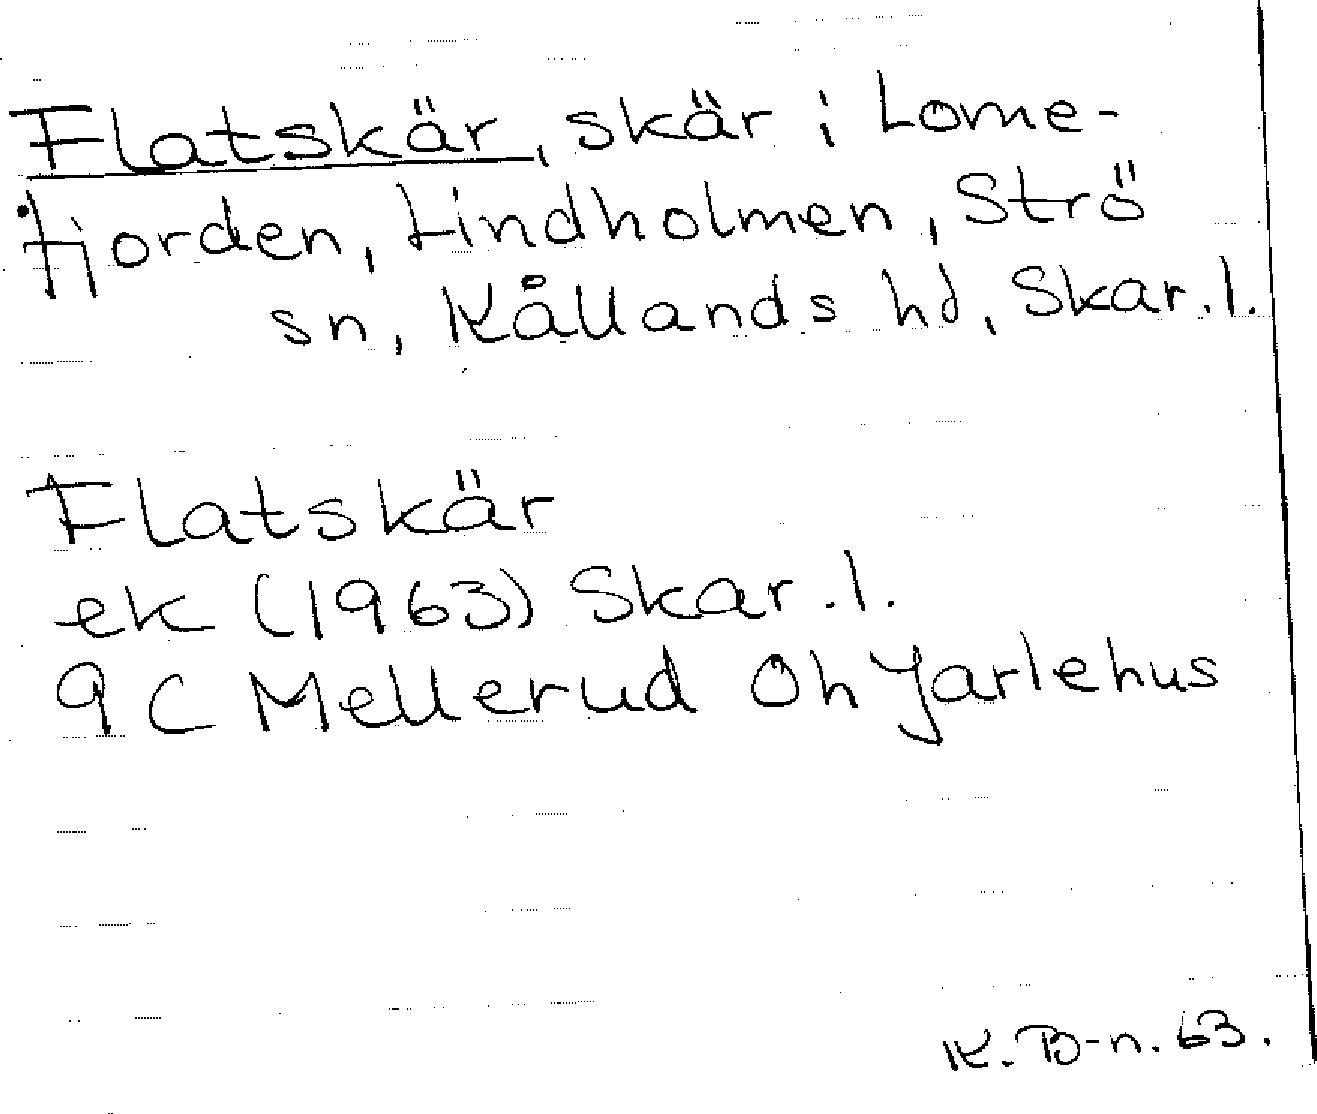 Flatskär, skär i Lome-
fjorden, Lindholmen, Strö
sn, Kållands hd, Skar.l.
Flatskär
ek (1963) Skar.l.
9C Mellerud Oh Jarlehus
K.B-n.63.